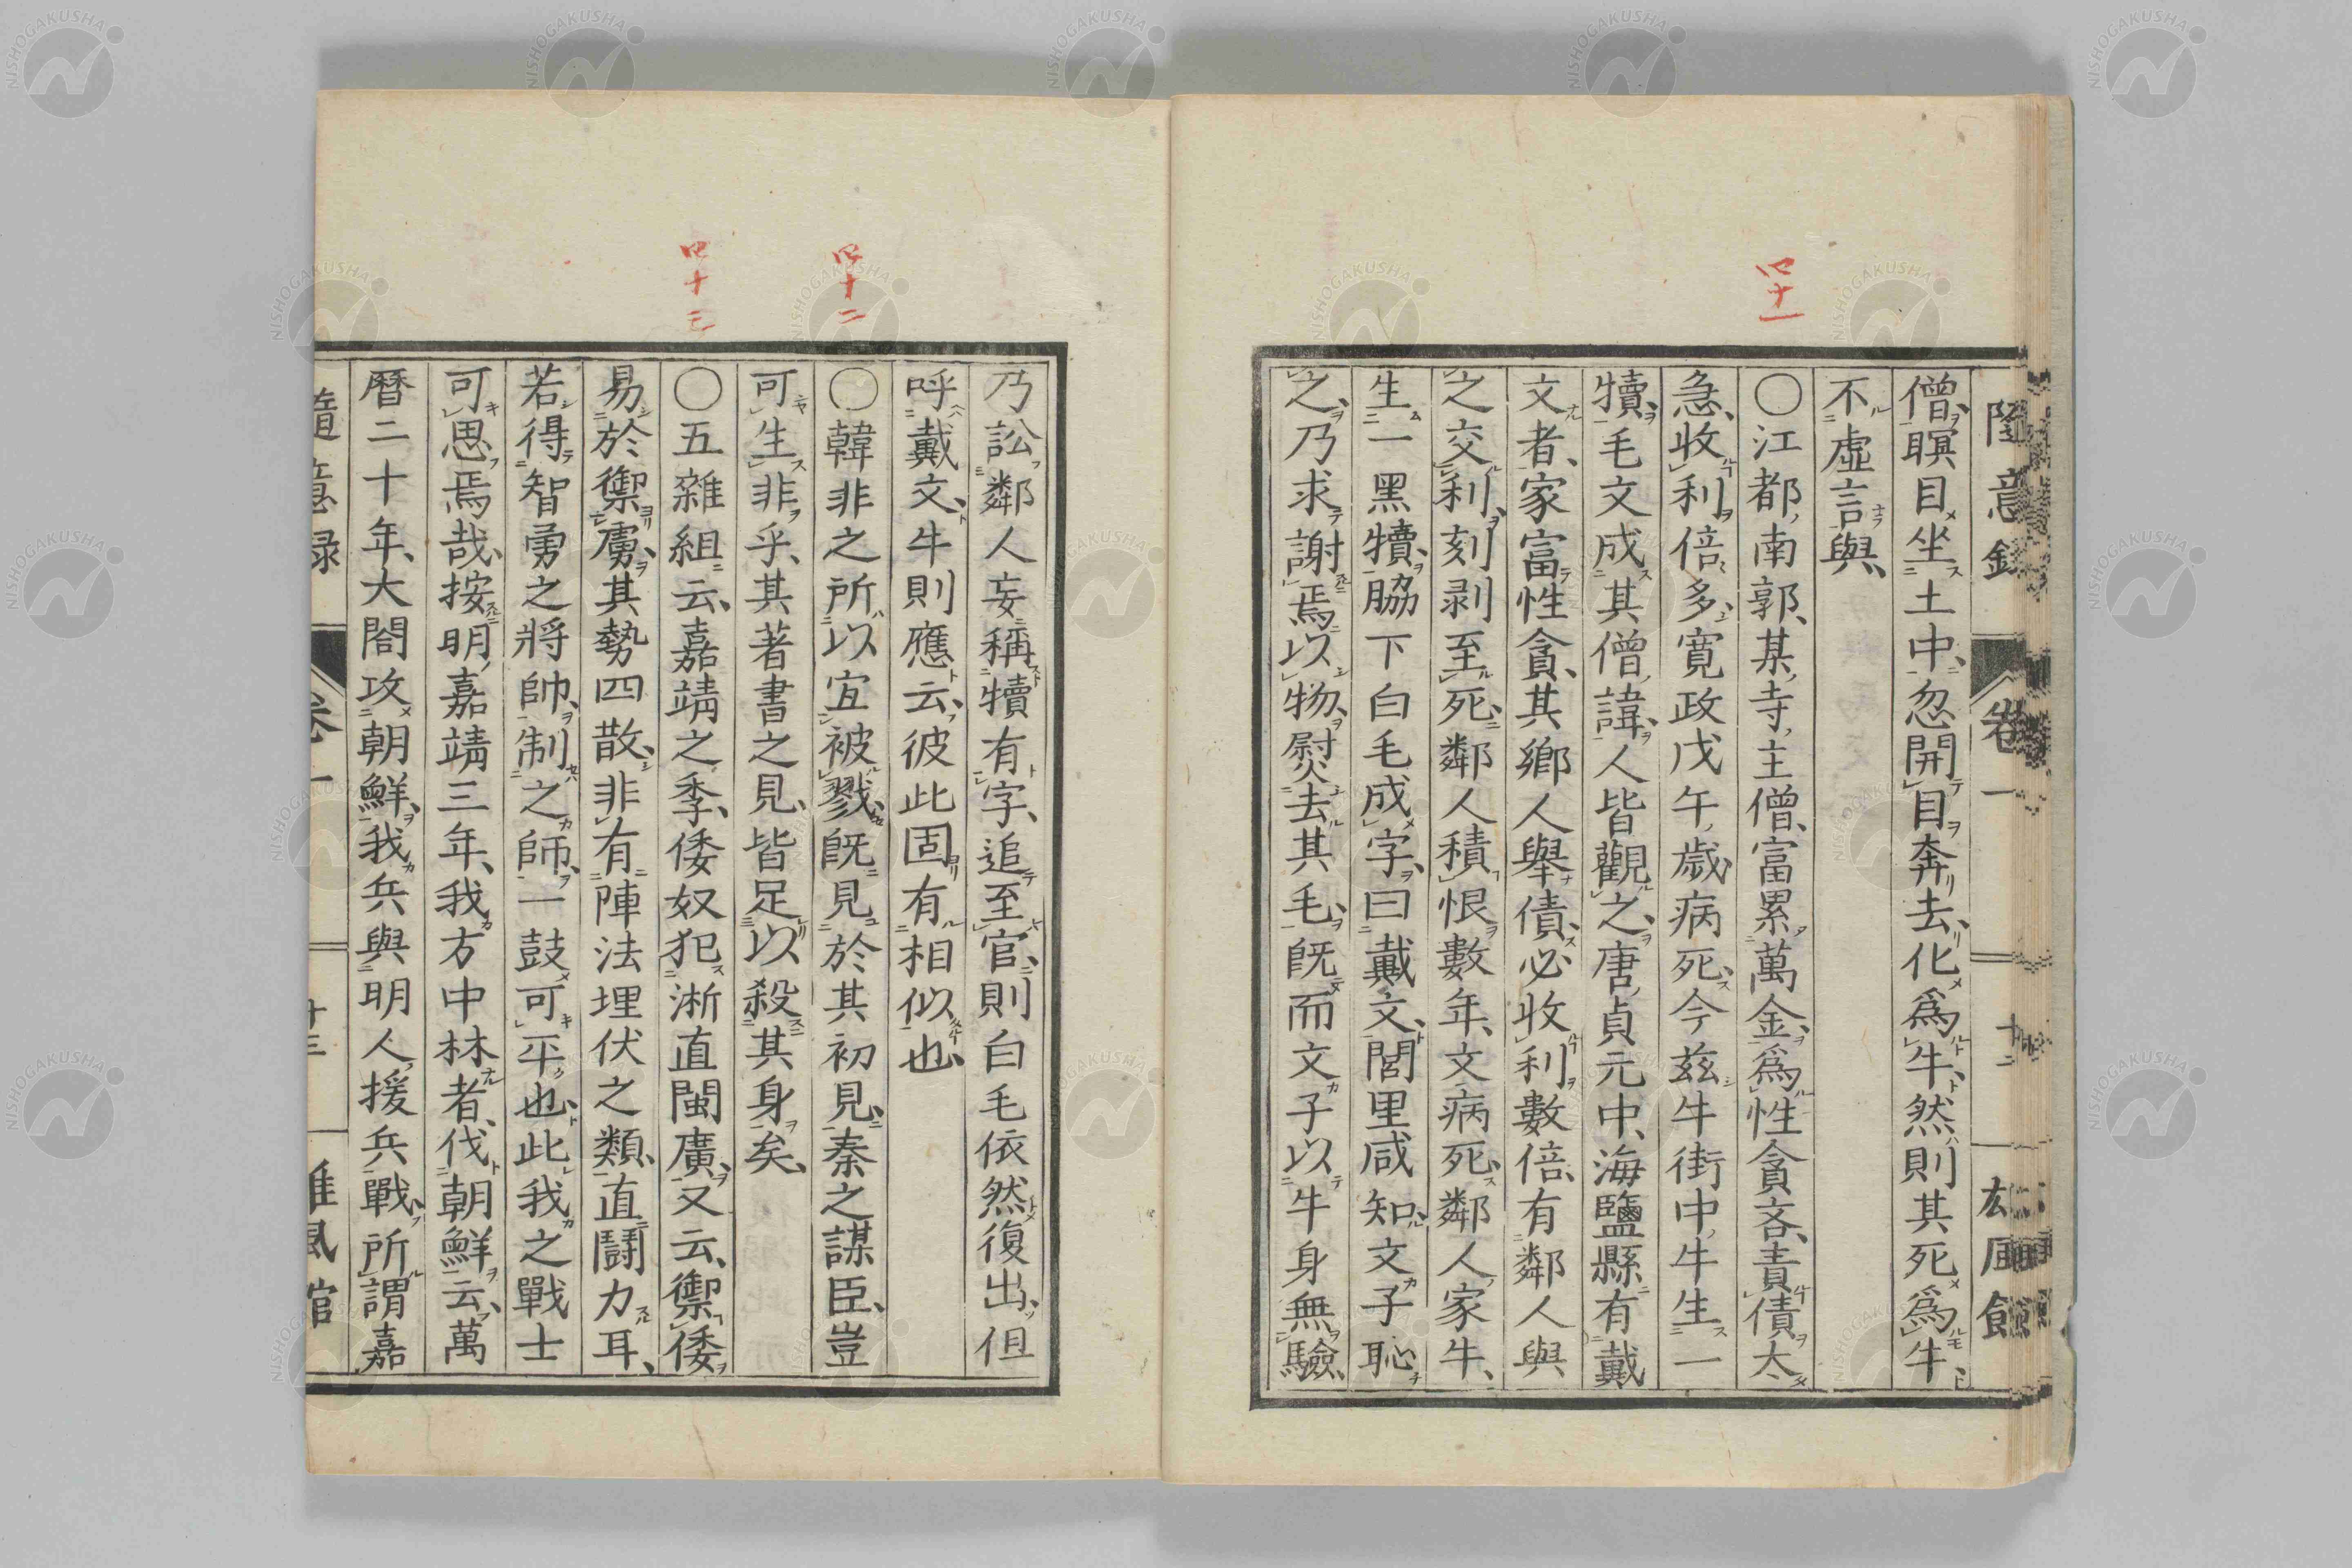 隨意錄 卷一 十二
僧、瞑目坐土中、忽開目奔去、化爲牛、然則其死爲牛、
不虛言與、
四十一
〇江都南郭、某寺主僧、富累萬金、爲性貪吝、責債太
急、收利倍多、寬政戊午歲病死、今茲牛街中、牛生一
犢、毛文成其僧諱、人皆觀之、唐貞元中、海鹽縣有戴
文者、家富性貪、其鄉人舉債、必收利數倍、有鄰人與
之交利、刻剥至死、鄰人積恨數年、文病死、鄰人家牛、
生一黑犢、脇下白毛成字、曰戴文、閭里咸知、文子恥
之、乃求謝焉、以物熨去其毛、旣而文子以牛身無驗、
乃訟鄰人妄稱犢有字、追至官、則白毛依然復出、但
呼戴文、牛則應云、彼此固有相似也、
四十二
〇韓非之所以宜被戮、旣見於其初見、秦之謀臣、豈
可生非乎、其著書之見、皆足以殺其身矣、
四十三
〇五雜組云、嘉靖之季、倭奴犯浙直閩廣、又云、禦倭
易於禦虜、其勢四散、非有陣法埋伏之類、直鬪力耳、
若得智勇之將帥、制之師、一鼓可平也、此我之戰士
可思焉哉、按明嘉靖三年、我方中林者、伐朝鮮云、萬
曆二十年、大閤攻朝鮮、我兵與明人援兵戰、所謂嘉
隨意録 卷一 十三 維風館
NISHOGAKUSHA